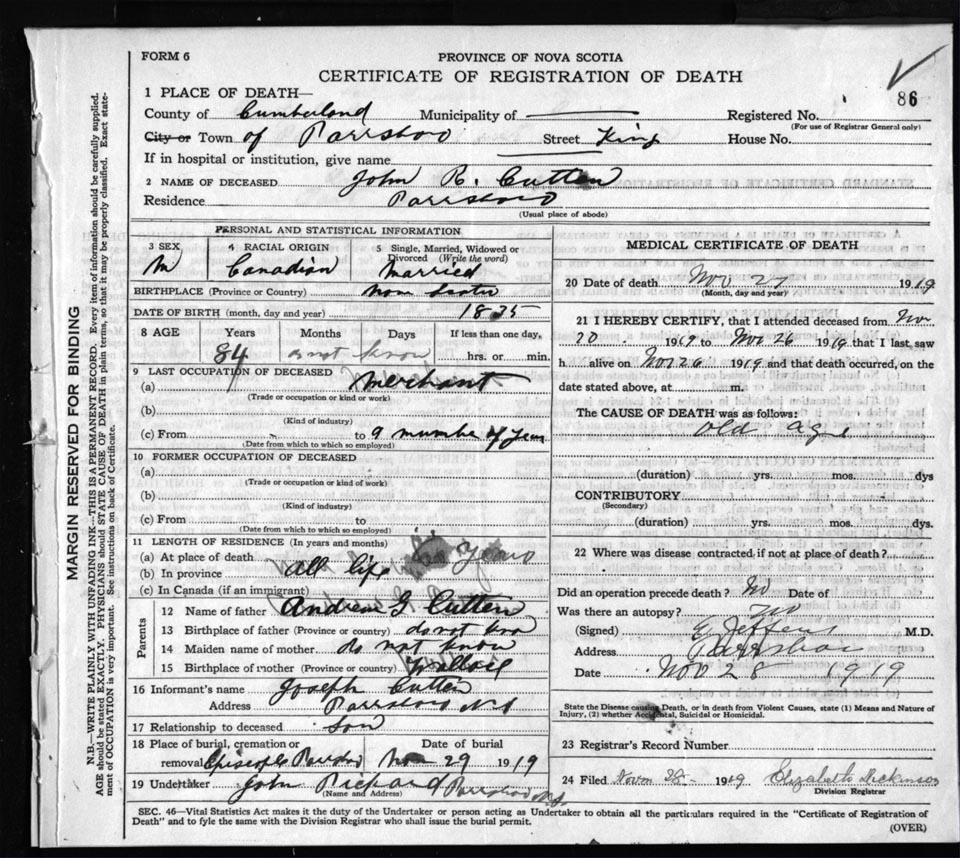 FORM 6
PROVINCE OF NOVA SCOTIA
CERTIFICATE OF REGISTRATION OF DEATH
86
1 PLACE OF DEATH—
County of Cumberland Municipality of Registered No.
(For use of Registrar General only)
City or Town of Parrsboro Street King House No.
If in hospital or institution, give name
2 NAME OF DECEASED John R. Cutten
Residence Parrsboro
(Usual place of abode)
PERSONAL AND STATISTICAL INFORMATION
3 SEX 4 RACIAL ORIGIN 5 Single, Married, Widowed or
Divorced (Write the word)
M Canadian Married
BIRTHPLACE (Province or Country) Nova Scotia
DATE OF BIRTH (month, day and year) 1835
8 AGE Years Months Days If less than one day,
84 do not know hrs. or min.
9 LAST OCCUPATION OF DECEASED
(a) Merchant
(Trade or occupation or kind or work)
(b)
(Kind of industry)
(c) From to a number of years
(Date from which to which so employed)
10 FORMER OCCUPATION OF DECEASED
(a)
(Trade or occupation or kind of work)
(b)
(Kind of industry)
(c) From to
(Date from which to which so employed)
11 LENGTH OF RESIDENCE (In years and months)
(a) At place of death years
(b) In province All life
(c) In Canada (if an immigrant)
Parents
12 Name of father Andrew G Cutten
13 Birthplace of father (Province or country) do not kno
14 Maiden name of mother do not know
15 Birthplace of mother (Province or country) Wallace
16 Informant's name Joseph Cutten
Address Parrsboro N S
17 Relationship to deceased Son
18 Place of burial, cremation or Date of burial
removal Parrsboro Nov 29 1919
19 Undertaker John Rickard Parrsboro N.S.
(Name and Address)
MEDICAL CERTIFICATE OF DEATH
20 Date of death Nov 27 1919
(Month, day and year)
21 I HEREBY CERTIFY, that I attended deceased from Nov
20 1919 to Nov 26 1919 that I last saw
h alive on Nov 26 1919 and that death occurred, on the
date stated above, at m.
The CAUSE OF DEATH was as follows:
Old Age
(duration) yrs. mos. dys
CONTRIBUTORY
(Secondary)
(duration) yrs. mos. dys.
22 Where was disease contracted if not at place of death?
Did an operation precede death? No Date of
Was there an autopsy? No
(Signed) M.D.
Address Parrsboro
Date Nov 28 1919
State the Disease causing Death, or in death from Violent Causes, state (1) Means and Nature of
Injury, (2) whether Accidental, Suicidal or Homicidal.
23 Registrar's Record Number
24 Filed Nov 28 1919 Elizabeth Dickinson
Division Registrar
SEC. 46—Vital Statistics Act makes it the duty of the Undertaker or person acting as Undertaker to obtain all the particulars required in the "Certificate of Registration of
Death" and to fyle the same with the Division Registrar who shall issue the burial permit.
(OVER)
MARGIN RESERVED FOR BINDING
N.B.—WRITE PLAINLY WITH UNFADING INK—THIS IS A PERMANENT RECORD. Every item of information should be carefully supplied.
AGE should be stated EXACTLY. PHYSICIANS should STATE CAUSE OF DEATH in plain terms, so that it may be properly classified. Exact state-
ment of OCCUPATION is very important. See instructions on back of Certificate.